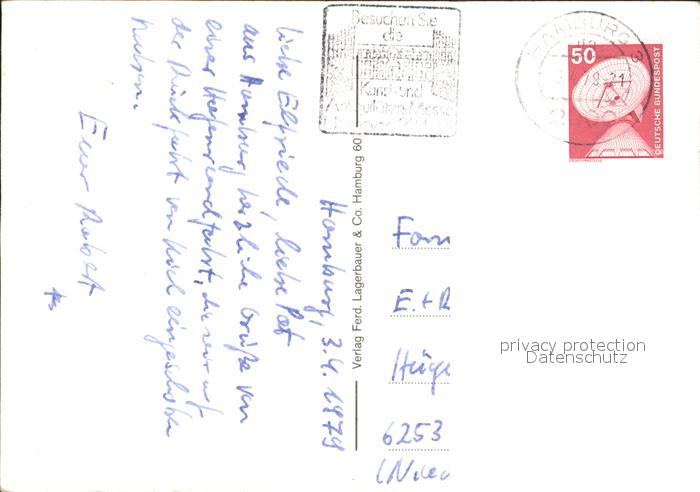 Hamburg, 3.4.1979
liebe Elfriede, lieber
aus Hamburg herzliche Grüße von
einer Hafenrundfahrt, die wir auf
der Rückfahrt von Kiel eingeschoben
haben.
Euer Robert
Besuchen Sie
die
Kunst- und
Antiquitäten-Messe
HAMBURG
50
DEUTSCHE BUNDESPOST
Verlag Ferd. Lagerbauer & Co. Hamburg 60
Fam
E. + R
Hüge
6253
privacy protection
Datenschutz